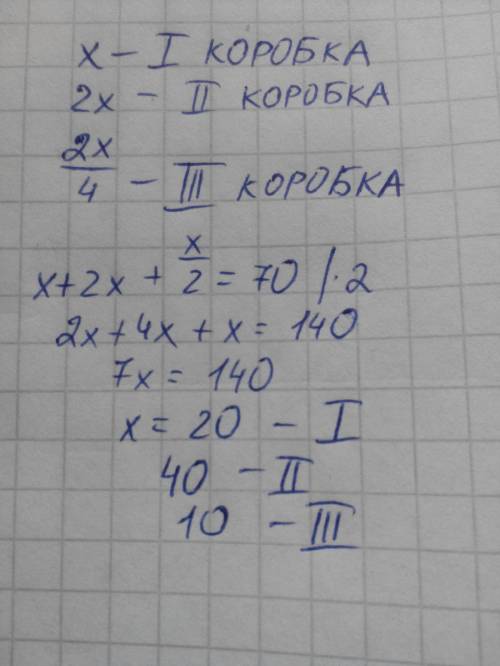 x – I КОРОБКА
2x – II КОРОБКА
2x/4 – III КОРОБКА
x+2x + x/2 = 70 /·2
2x+4x+x = 140
7x = 140
x = 20 – I
40 – II
10 – III